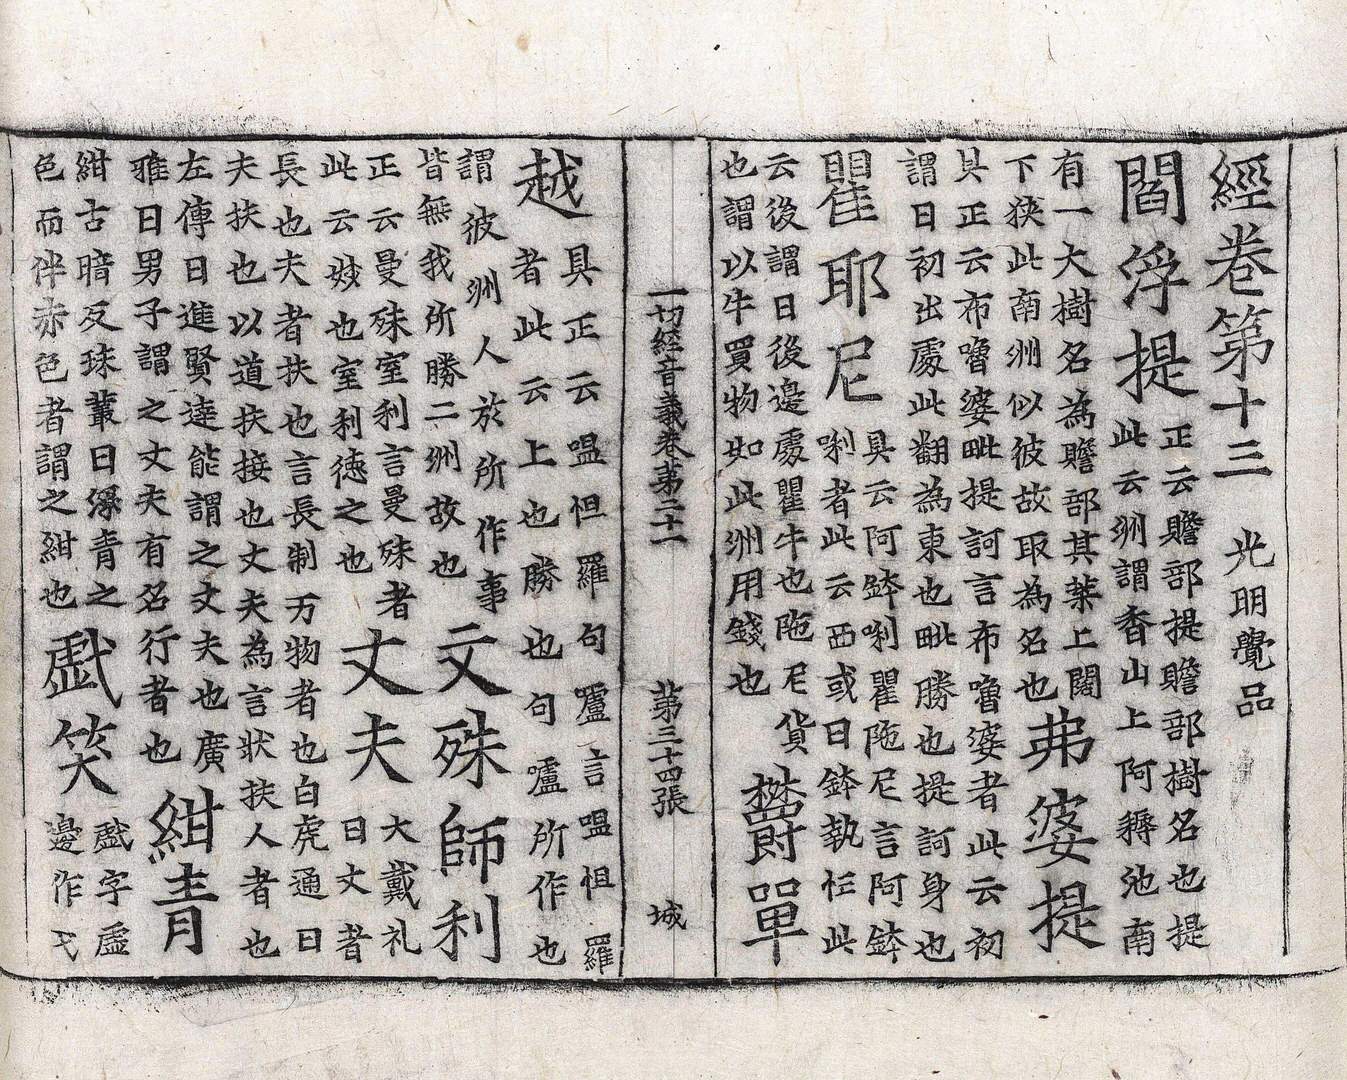 經卷第十三 光明覺品
閻浮提
正云贍部提贍部樹名也提
此云洲謂香山上阿耨池南
有一大樹名為贍部其葉上闊
下狹此南洲似彼故取為名也
弗婆提
具正云布嚕婆毗提訶言布嚕婆者此云初
謂日初出處此翻為東也毗勝也提訶身也
瞿耶尼
具云阿鉢唎瞿陁尼言阿鉢
唎者此云西或曰鉢執忙此
云後謂日後邊處瞿牛也陁尼貨
也謂以牛買物如此洲用錢也
欎單
一切經音義卷第二十一 第三十四張 城
越
具正云嗢怛羅句嚧言嗢怛羅
者此云上也勝也句嚧所作也
謂彼洲人於所作事
皆無我所勝二洲故也
文殊師利
正云曼殊室利言曼殊者
此云妙也室利德之也
丈夫
大戴礼
曰丈者
長也夫者扶也言長制万物者也白虎通曰
夫扶也以道扶接也丈夫為言状扶人者也
左傳曰進賢達能謂之丈夫也廣
雅曰男子謂之丈夫有名行者也
紺青
紺古暗反珠叢曰深青之
色而伴赤色者謂之紺也
戲笑
戲字虛
邊作弋